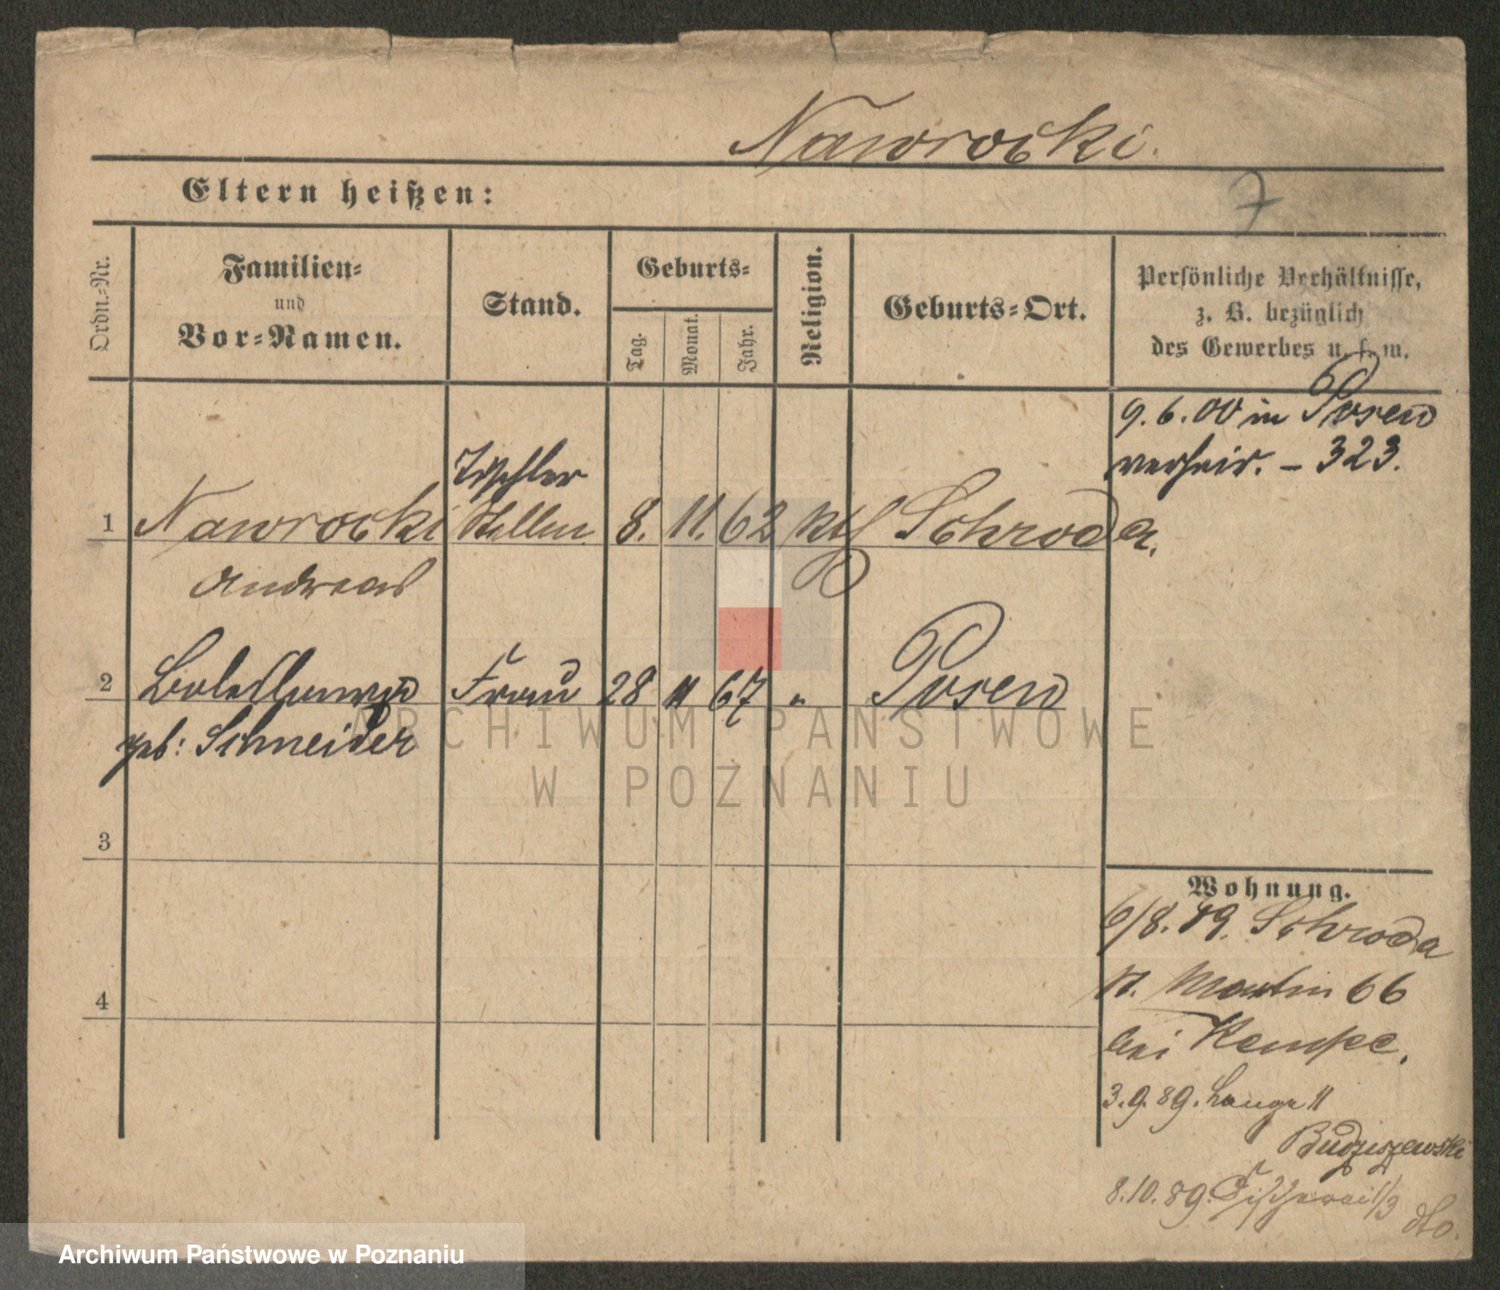 Nawrocki.
Eltern heißen:
7
Ordn.-Nr.
Familien-
und
Vor-Namen.
Stand.
Geburts-
Tag.
Monat.
Jahr.
Religion.
Geburts-Ort.
Persönliche Verhältnisse,
z. B. bezüglich
des Gewerbes u. s. w.
9.6.00 in Posen
verheir. – 323.
Tischler
1 Nawrocki 8. 11. 62 Kth Schroda.
Andreas
2 Frau 28 11 67 " Posen
geb: Schneider
3
4
Wohnung.
6/8. 89. Schroda
St. Martin 66
bei Kempe.
3.9.89. Lange 11
Budzyszewski
8.10.89. Fischerei 1/3
dto.
ARCHIWUM PAŃSTWOWE
W POZNANIU
Archiwum Państwowe w Poznaniu